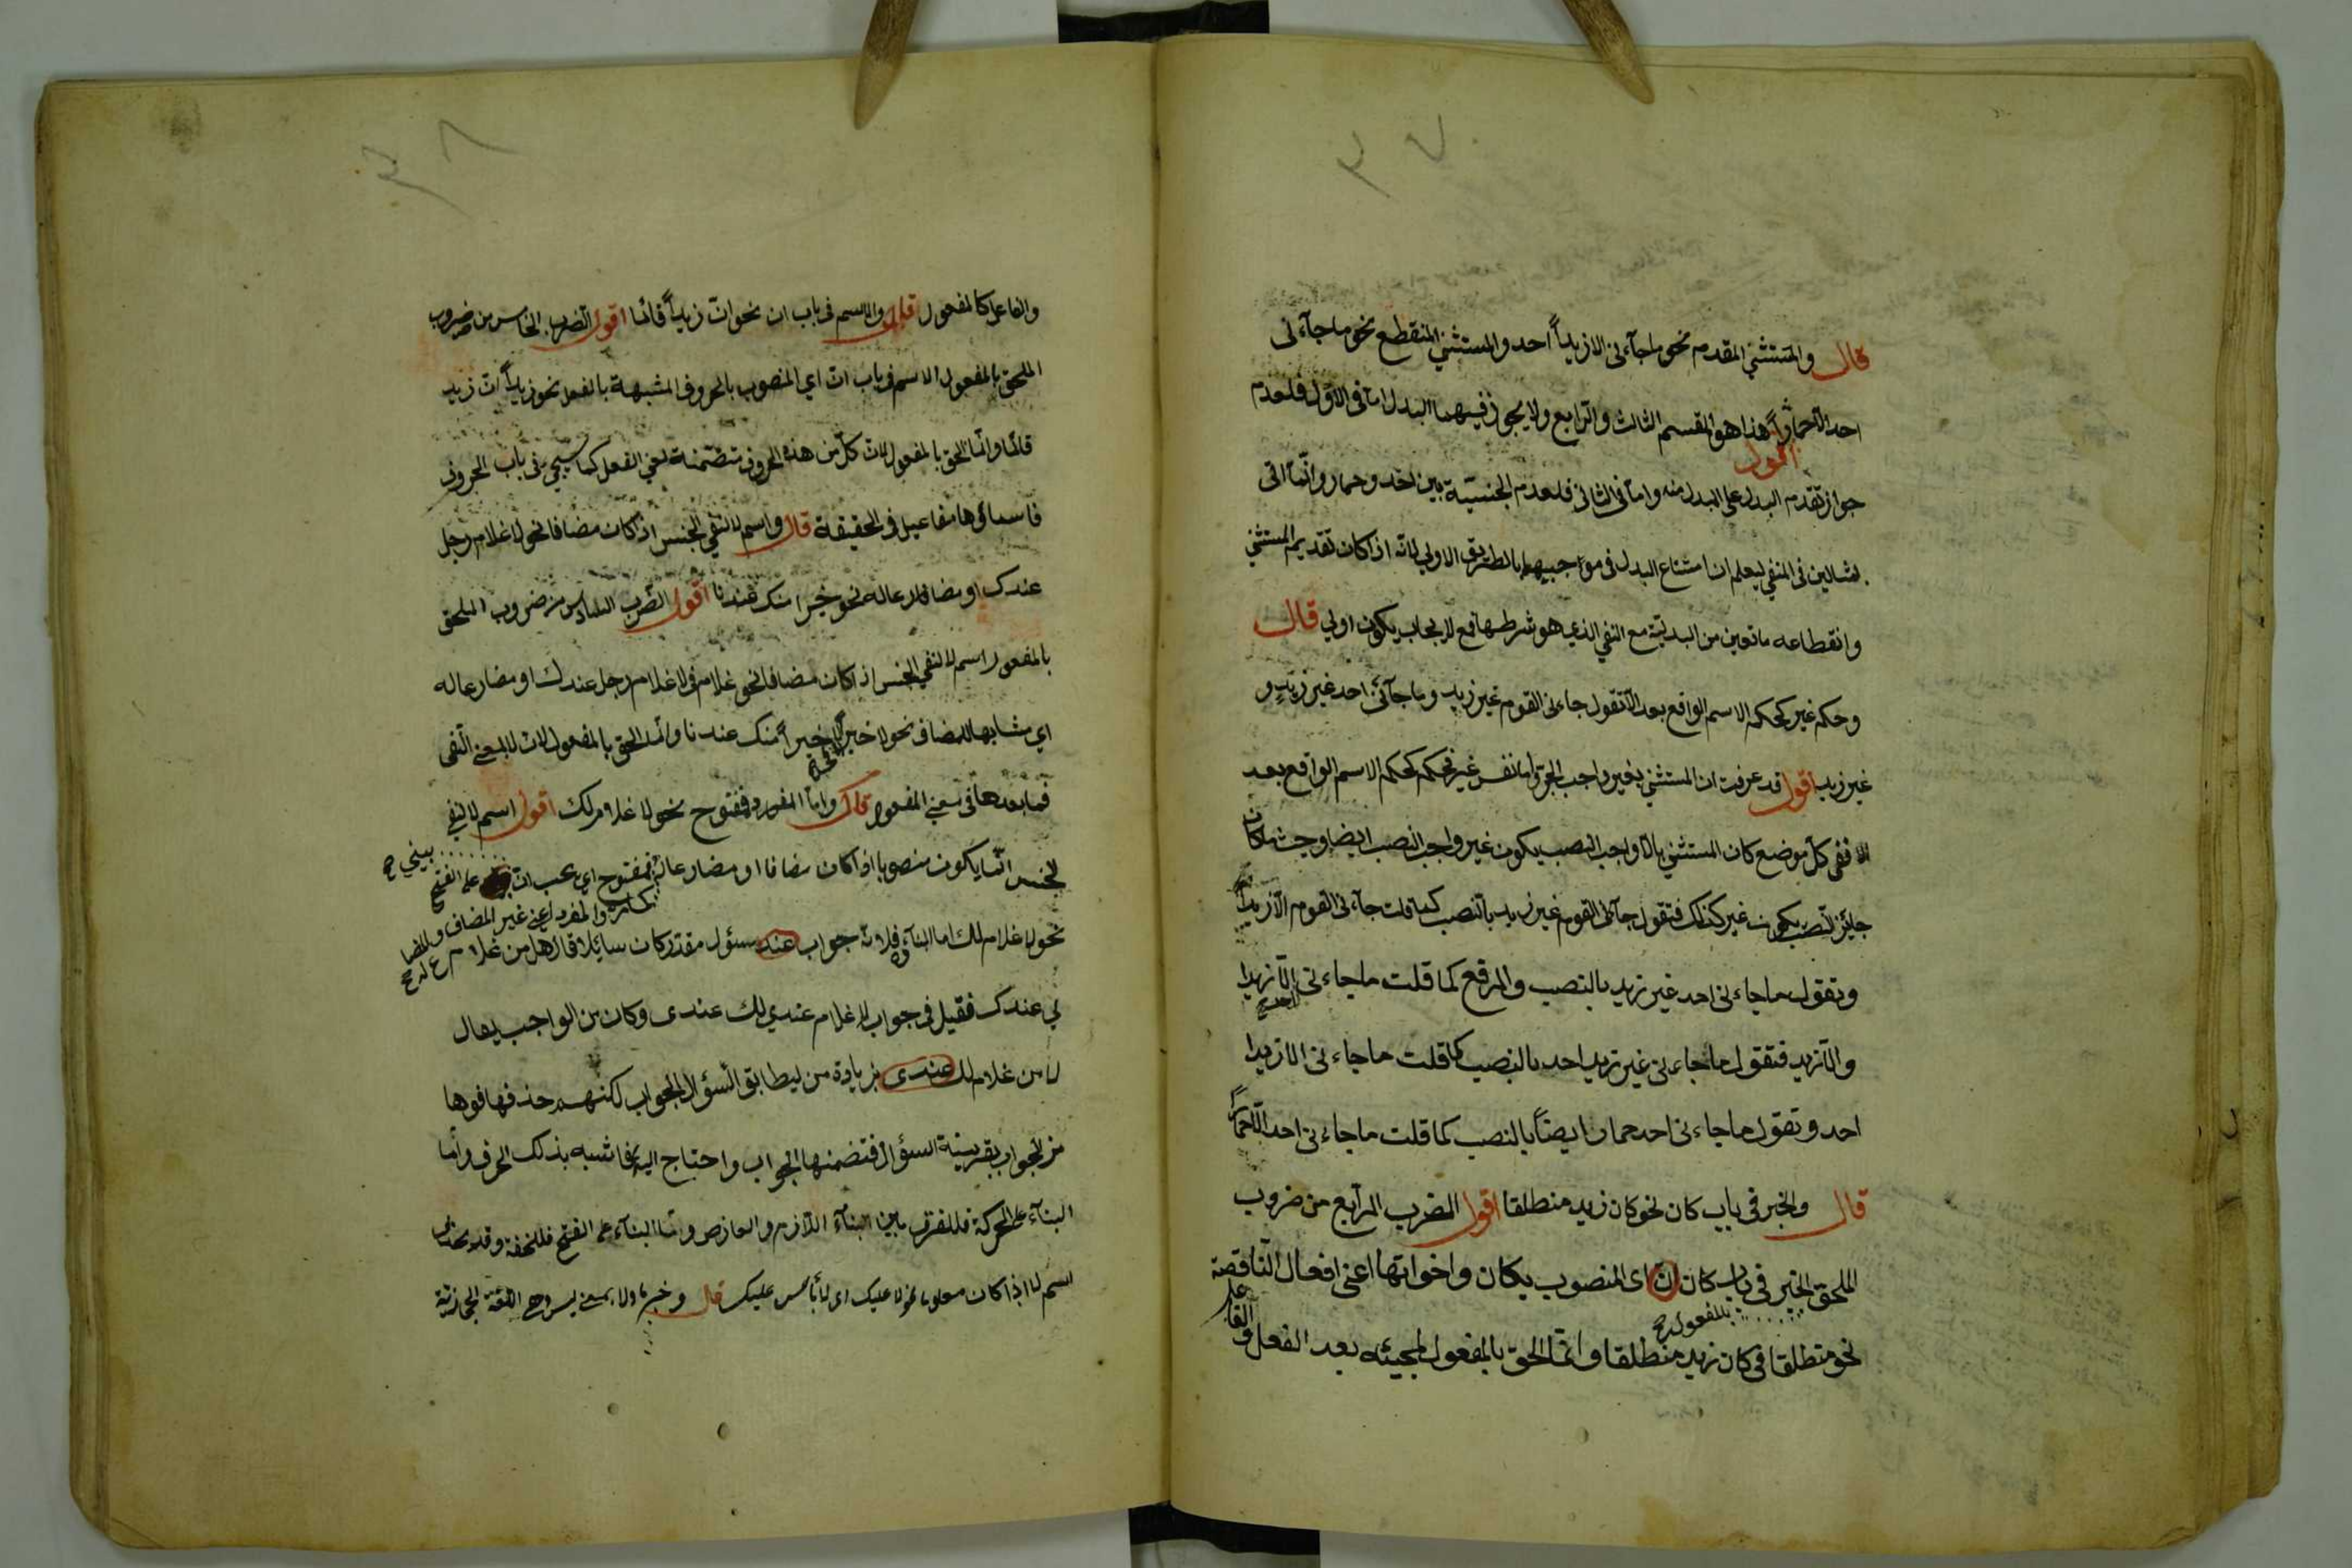 ٣٧
قال والمستثنى المقدم نحو ماجآءنى الا زيداً احد والمستثنى المنقطع نحو ماجآءنى
احد الا حماراً اقول هذا هو القسم الثالث والرابع ولا يجوز فيهما البدل اما فى الاول فلعدم
جواز تقدم البدل على المبدل منه واما فى الثانى فلعدم الجنسيّة بين احد وحمار وانّما اتى
بمثالين فى المنفى ليعلم ان امتناع البدل فى موجبيهما بالطريق الاولى لانّه اذا كان تقديم المستثنى
وانقطاعه مانعين من البدليّة مع النفى الذى هو شرطها فمع الايجاب يكون اولى قال
وحكم غير كحكم الاسم الواقع بعد الّا تقول جاءنى القوم غير زيد وماجآئنى احد غير زيدٍ و
غير زيد اقول قد عرفت ان المستثنى بغير واجب الجرّ واما نفس غير فحكمه كحكم الاسم الواقع بعد
الا ففى كلّ موضع كان المستثنى بالّا واجب النصب يكون غير واجب النصب ايضا وحيثما كان
جايز النّصب يكون غير كذلك فتقول جآءنى القوم غير زيد بالنصب كما قلت جآءنى القوم الّا زيداً
وتقول ماجاءنى احد غير زيد بالنصب والرفع كما قلت ماجاءنى احد الّا زيدا
والّا زيد فتقول ماجاءنى غير زيد احد بالنصب كما قلت ماجاءنى الا زيدا
احد وتقول ماجاءنى احد غير حمار ايضاً بالنصب كما قلت ماجاءنى احد الّا حماراً
قال والخبر فى باب كان نحو كان زيد منطلقا اقول الضرب الرابع من ضروب
الملحق بالمفعول الخبر فى باب كان اى المنصوب بكان واخواتها اعنى افعال النّاقصة
نحو منطلقا فى كان زيد منطلقا وانّما الحق بالمفعول لمجيئه بعد الفعل والفاعل
٣٨
والفاعل كالمفعول قال والاسم فى باب ان نحو انّ زيداً قائما اقول الضرب الخامس من ضروب
الملحق بالمفعول الاسم فى باب انّ اي المنصوب بالحروف المشبهة بالفعل نحو زيداً انّ زيد
قائما وانّما الحق بالمفعول لانّ كلّ من هذه الحروف متضمنة لمعنى الفعل كما سيجئ فى باب الحروف
فاسمائها مفاعيل فى الحقيقة قال واسم لا لنفى الجنس اذ كان مضافا نحو لا غلام رجل
عندك او مضارعا له نحو خيرا منك عندنا اقول الضرب السادس من ضروب الملحق
بالمفعول اسم لا لنفى الجنس اذا كان مضافا نحو غلام فى لا غلام رجل عندك او مضارعا له
اي مشابها للمضاف نحو لا خيراً منك عندنا وانّما الحق بالمفعول لانّ لا بمعنى النّفى
فما بعدها فى معنى المفعول قال وامّا المفرد فمفتوح نحو لا غلام لك اقول اسم لا لنفى
الجنس انّما يكون منصوبا اذا كان مضافا او مضارعا له والمفرد اعنى غير المضاف والمضارع له فمفتوح اى يجب ان يبنى على الفتح
نحو لا غلام لك اما البنآء فلانّه جواب عند سؤل مقدّر كان سايلا قال هل من غلام
لى عندك فقيل فى جواب لا غلام عندي لك عندى وكان من الواجب يقال
لا من غلام لك عندى بزيادة من ليطابق السؤال الجواب لكنهم حذفها فوها
من الجواب بقرينة السؤال فتضمنها الجواب واحتاج اليها فاشبه بذلك الحرف وأما
البنآء على الحركة فللفرق بين البنآء اللّازم والعارض وامّا البنآء على الفتح فللخفة وقد يحذف
اسم لا اذا كان معلوما نحو لا عليك اى لا بأس عليك قال وخبر ما ولا بمعنى ليس وهى اللغة الحجازية